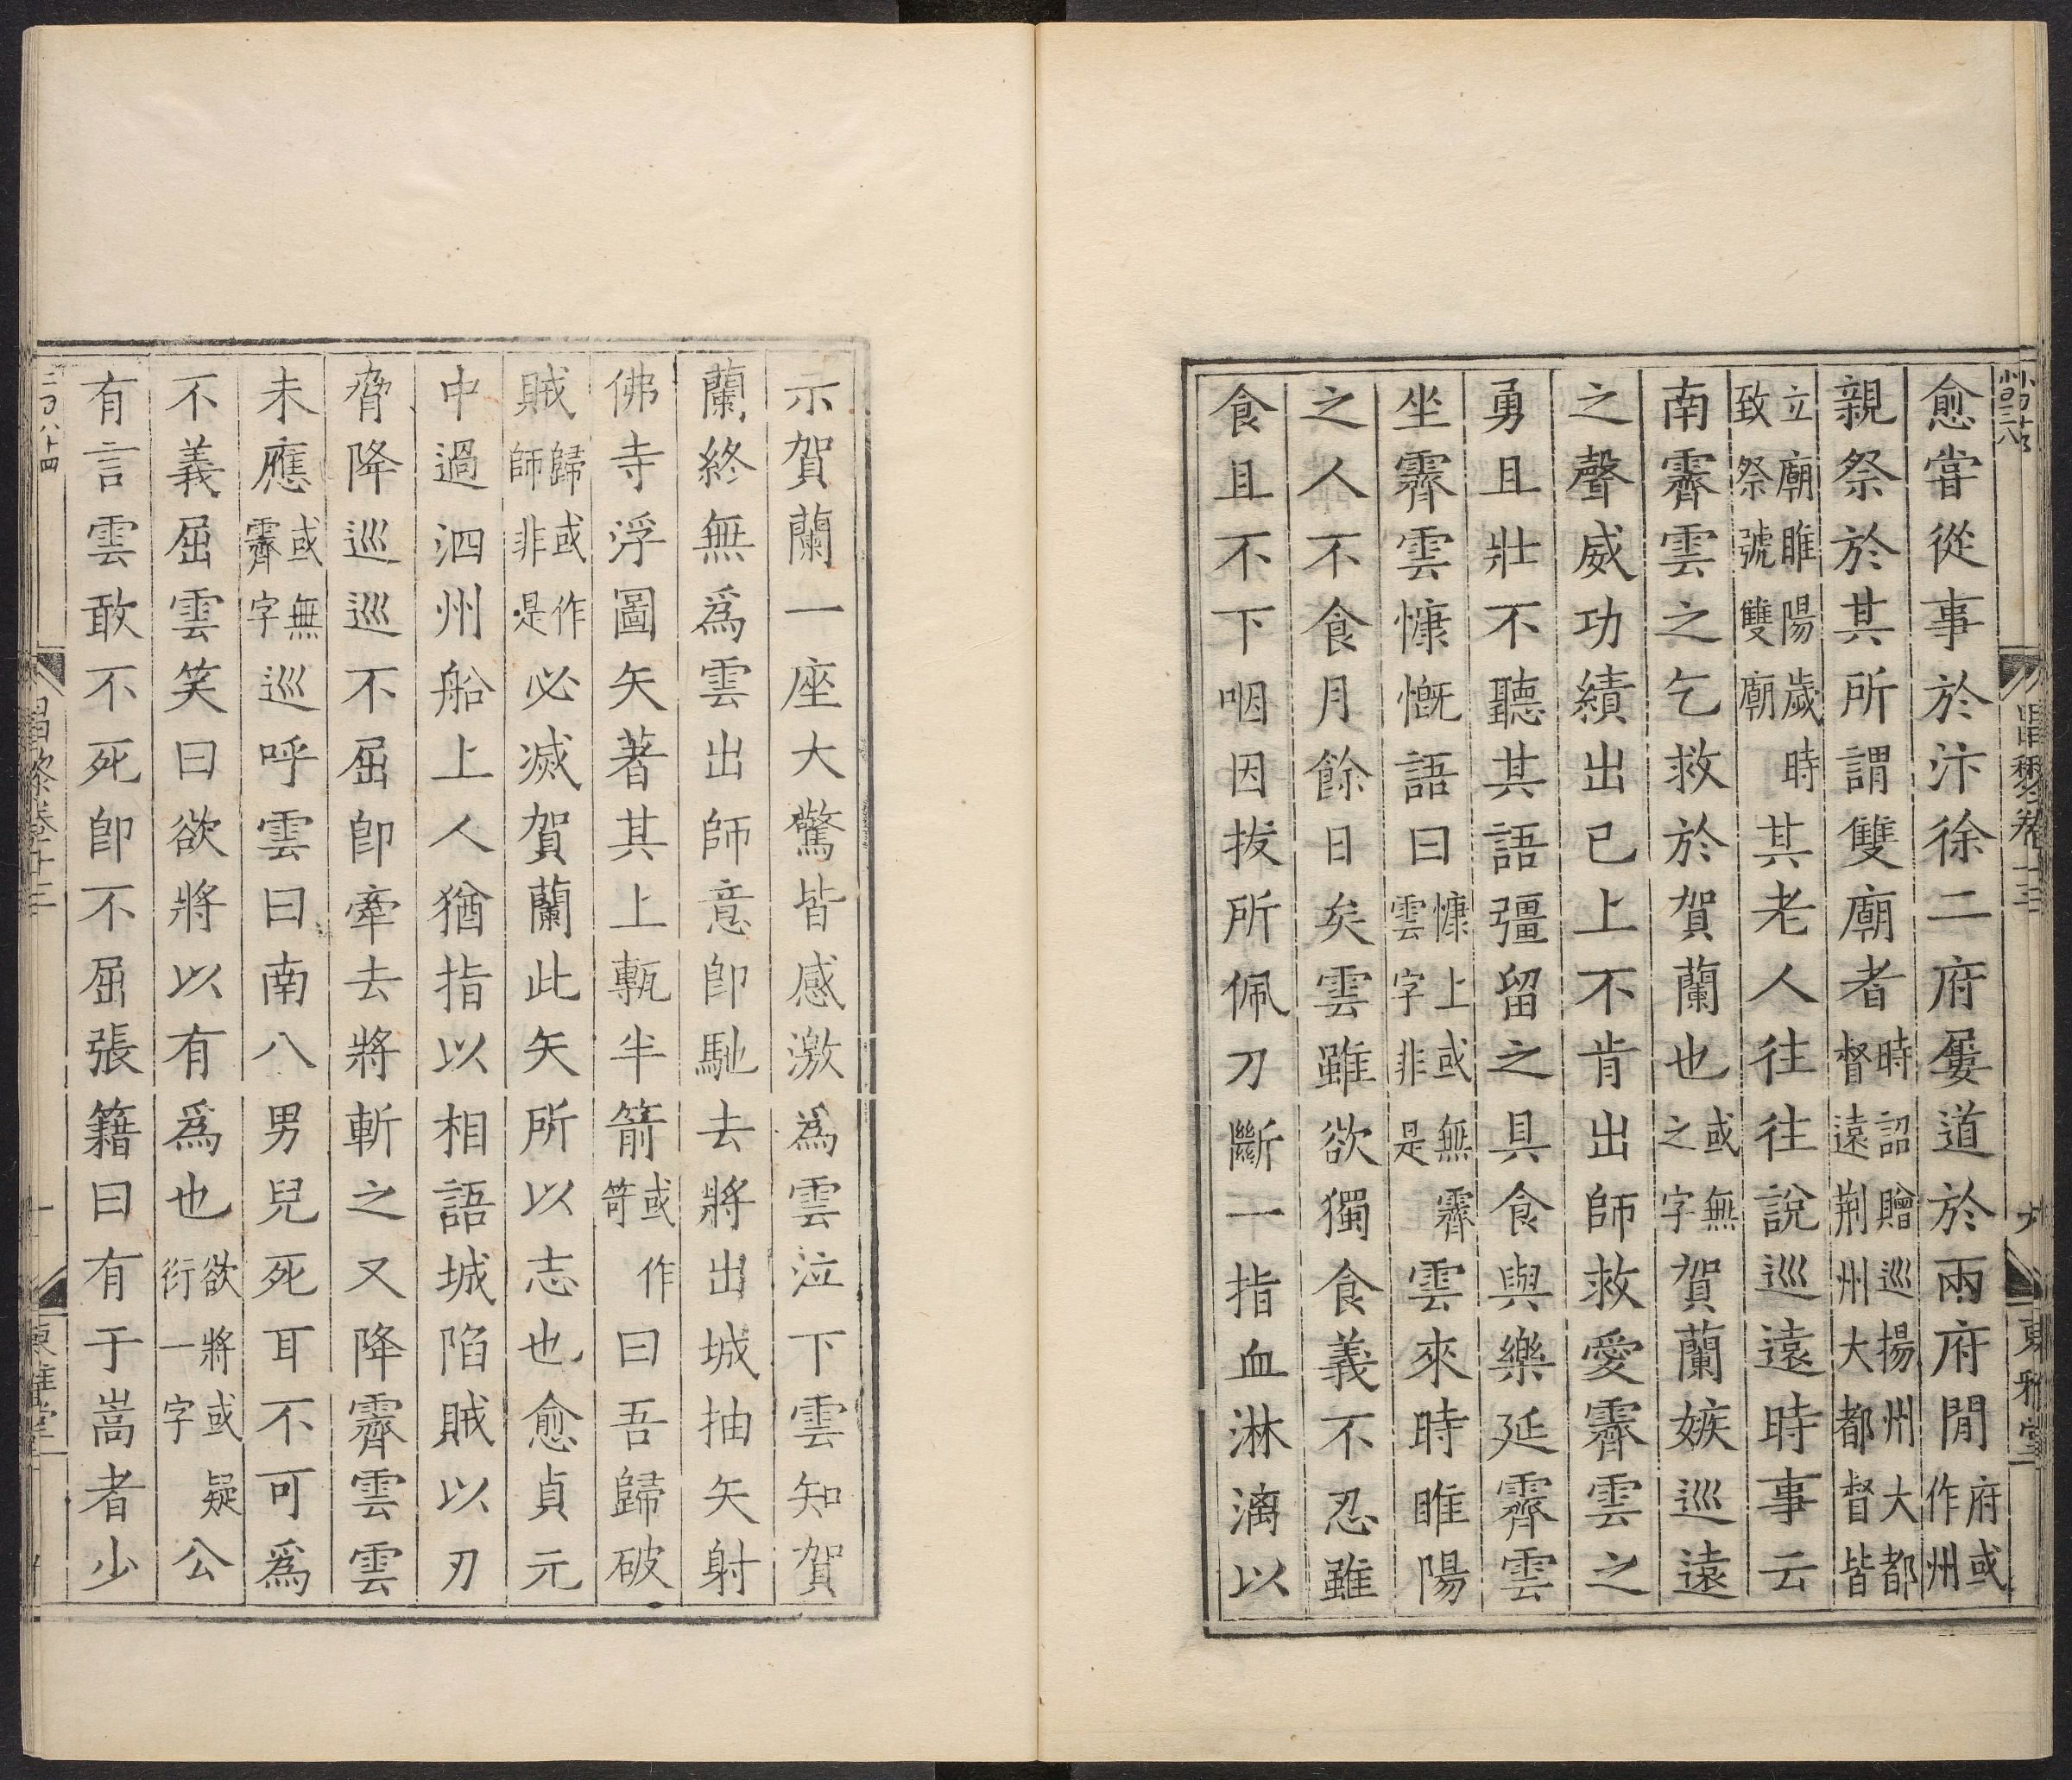 愈嘗從事於汴徐二府屢道於兩府閒府或作州
親祭於其所謂雙廟者時詔贈巡揚州大都督遠荆州大都督皆
立廟睢陽歲時致祭號雙廟其老人往往說巡遠時事云
南霽雲之乞救於賀蘭也或無之字賀蘭嫉巡遠
之聲威功績出己上不肯出師救愛霽雲之
勇且壯不聽其語彊留之具食與樂延霽雲
坐霽雲慷慨語曰慷上或無霽雲字非是雲來時睢陽
之人不食月餘日矣雲雖欲獨食義不忍雖
食且不下咽因拔所佩刀斷一指血淋漓以
示賀蘭一座大驚皆感激為雲泣下雲知賀
蘭終無為雲出師意卽馳去將出城抽矢射
佛寺浮圖矢著其上甎半箭或作笴曰吾歸破
賊歸或作師非是必滅賀蘭此矢所以志也愈貞元
中過泗州船上人猶指以相語城陷賊以刃
脅降巡巡不屈卽牽去將斬之又降霽雲雲
未應或無霽字巡呼雲曰南八男兒死耳不可為
不義屈雲笑曰欲將以有為也欲將或疑衍一字公
有言雲敢不死卽不屈張籍曰有于嵩者少
昌黎卷十三
東雅堂